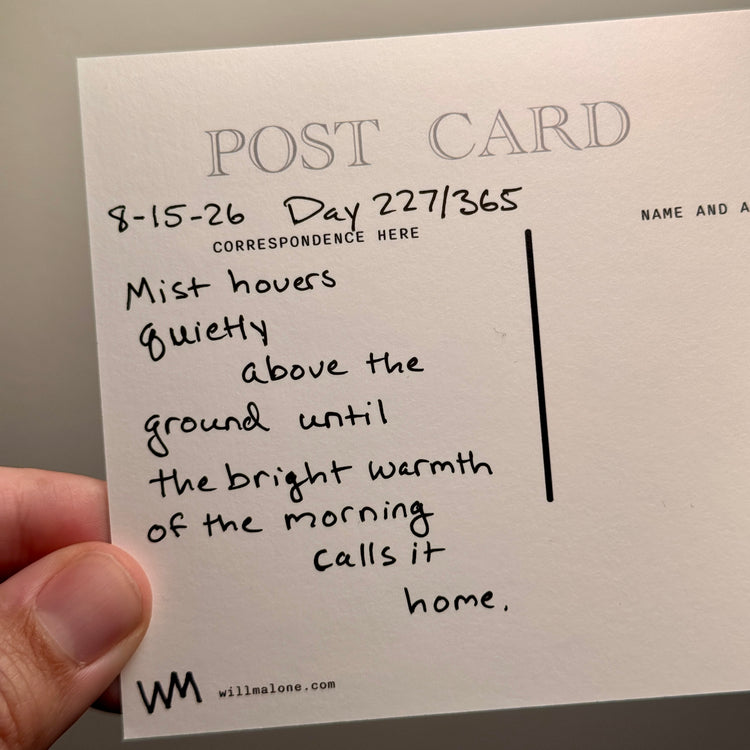 POST CARD
8-15-26 Day 227/365
CORRESPONDENCE HERE
NAME AND A
Mist hovers
quietly
above the
ground until
the bright warmth
of the morning
calls it
home.
WM willmalone.com